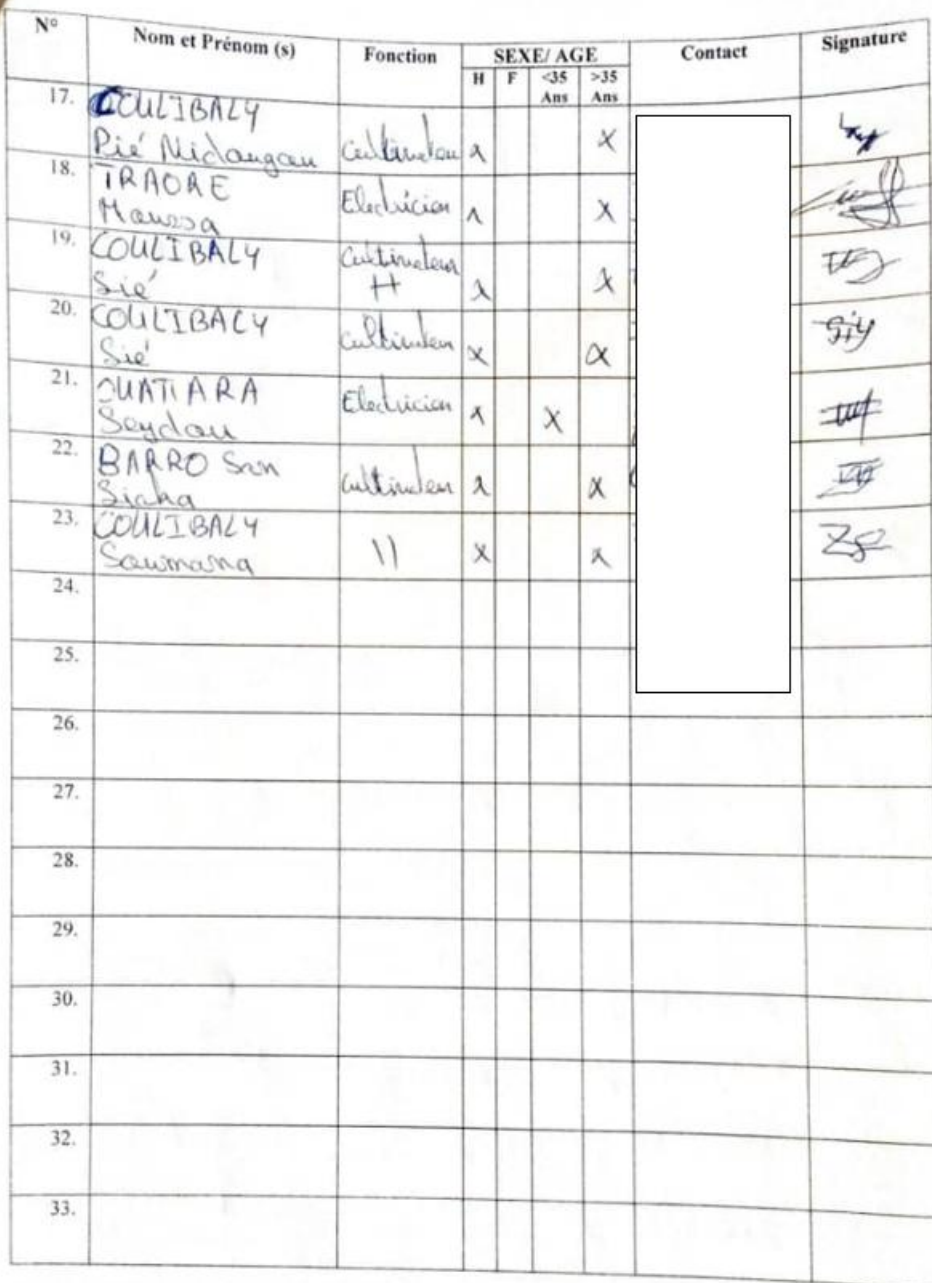 N° Nom et Prénom (s) Fonction SEXE/ AGE Contact Signature
H F <35 Ans >35 Ans
17. COULIBALY
Pié Nidangan Cultivateur x X
18. TRAORE
Moussa Electricien x X
19. COULIBALY
Sié Cultivateur H x X
20. COULIBALY
Sié Cultivateur x x Siy
21. OUATTARA
Seydou Electricien x X
22. BARRO San
Siaka Cultivateur x x
23. COULIBALY
Soumana 11 x x
24.
25.
26.
27.
28.
29.
30.
31.
32.
33.